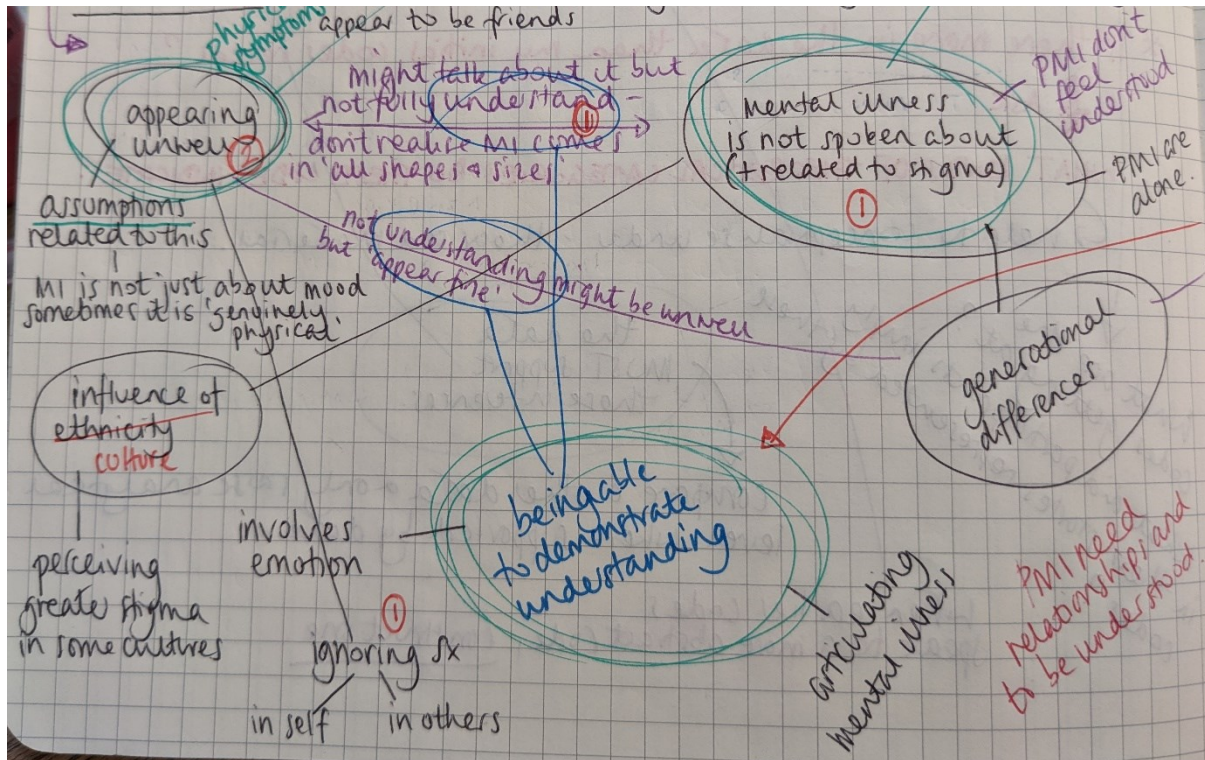 appear to be friends
physic
symptom
appearing
unwell
②
might talk about it but
not fully understand -
①
don't realise MI comes
in 'all shapes & sizes'
mental illness
is not spoken about
(+ related to stigma)
①
PMI don't
feel
understood
PMI are
alone.
assumptions
related to this
MI is not just about mood
sometimes it is 'genuinely
physical'
not understanding might be unwell
but 'appear fine'
generational
differences
influence of
ethnicity
culture
perceiving
greater stigma
in some cultures
involves
emotion
being able
to demonstrate
understanding
①
ignoring sx
in self
in others
articulating
mental illness
PMI need
relationship i and
to be understood.